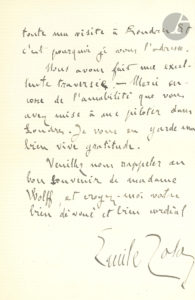 toute ma visite à Londres. Et
c'est pourquoi je vous l'adresse.
Nous avons fait une excel-
lente traversée — Merci en-
core de l'amabilité que vous
avez mise à me piloter dans
Londres. Je vous en garde une
bien vive gratitude.
Veuillez nous rappeler au
bon souvenir de madame
Wolff et croyez-moi votre
bien dévoué et bien cordial
Emile Zola